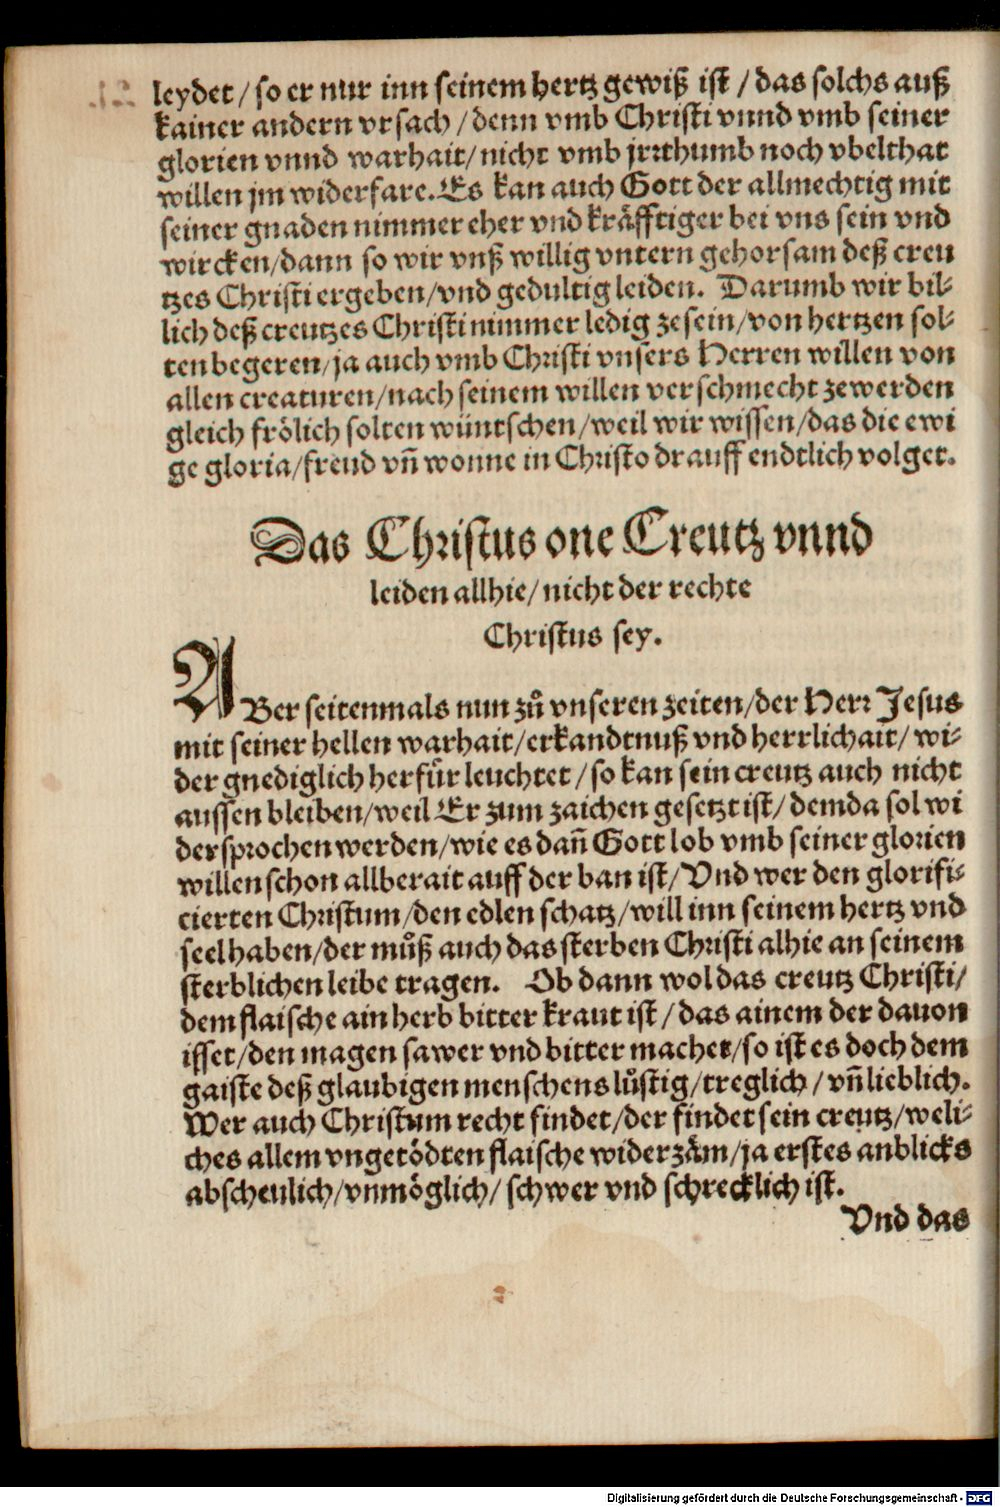 leydet / so er nur inn seinem hertz gewiß ist / das solchs auß
kainer andern vrsach / denn vmb Christi vnnd vmb seiner
glorien vnnd warhait / nicht vmb jrrthumb noch vbelthat
willen jm widerfare. Es kan auch Gott der allmechtig mit
seiner gnaden nimmer eher vnd kräfftiger bei vns sein vnd
wircken / dann so wir vnß willig vntern gehorsam deß creu
tzes Christi ergeben / vnd gedultig leiden. Darumb wir bil-
lich deß creutzes Christi nimmer ledig zesein / von hertzen sol-
ten begeren / ja auch vmb Christi vnsers Herren willen von
allen creaturen / nach seinem willen verschmecht zewerden
gleich frölich solten wüntschen / weil wir wissen / das die ewi
ge gloria / freud vn̄ wonne in Christo drauff endtlich volget.
Das Christus one Creutz vnnd
leiden allhie / nicht der rechte
Christus sey.
ABer seitenmals nun zů vnseren zeiten / der Herr Jesus
mit seiner hellen warhait / erkandtnuß vnd herrlichait / wi-
der gnediglich herfür leuchtet / so kan sein creutz auch nicht
aussen bleiben / weil Er zum zaichen gesetzt ist / dem da sol wi
dersprochen werden / wie es dan̄ Gott lob vmb seiner glorien
willen schon allberait auff der ban ist / Vnd wer den glorifi-
cierten Christum / den edlen schatz / will inn seinem hertz vnd
seel haben / der můß auch das sterben Christi alhie an seinem
sterblichen leibe tragen. Ob dann wol das creutz Christi /
dem flaische ain herb bitter kraut ist / das ainem der dauon
isset / den magen sawer vnd bitter machet / so ist es doch dem
gaiste deß glaubigen menschens lůstig / treglich / vn̄ lieblich.
Wer auch Christum recht findet / der findet sein creutz / weli-
ches allem vngetödten flaische widerzäm / ja erstes anblicks
abscheulich / vnmöglich / schwer vnd schrecklich ist.
Vnd das
Digitalisierung gefördert durch die Deutsche Forschungsgemeinschaft - DFG